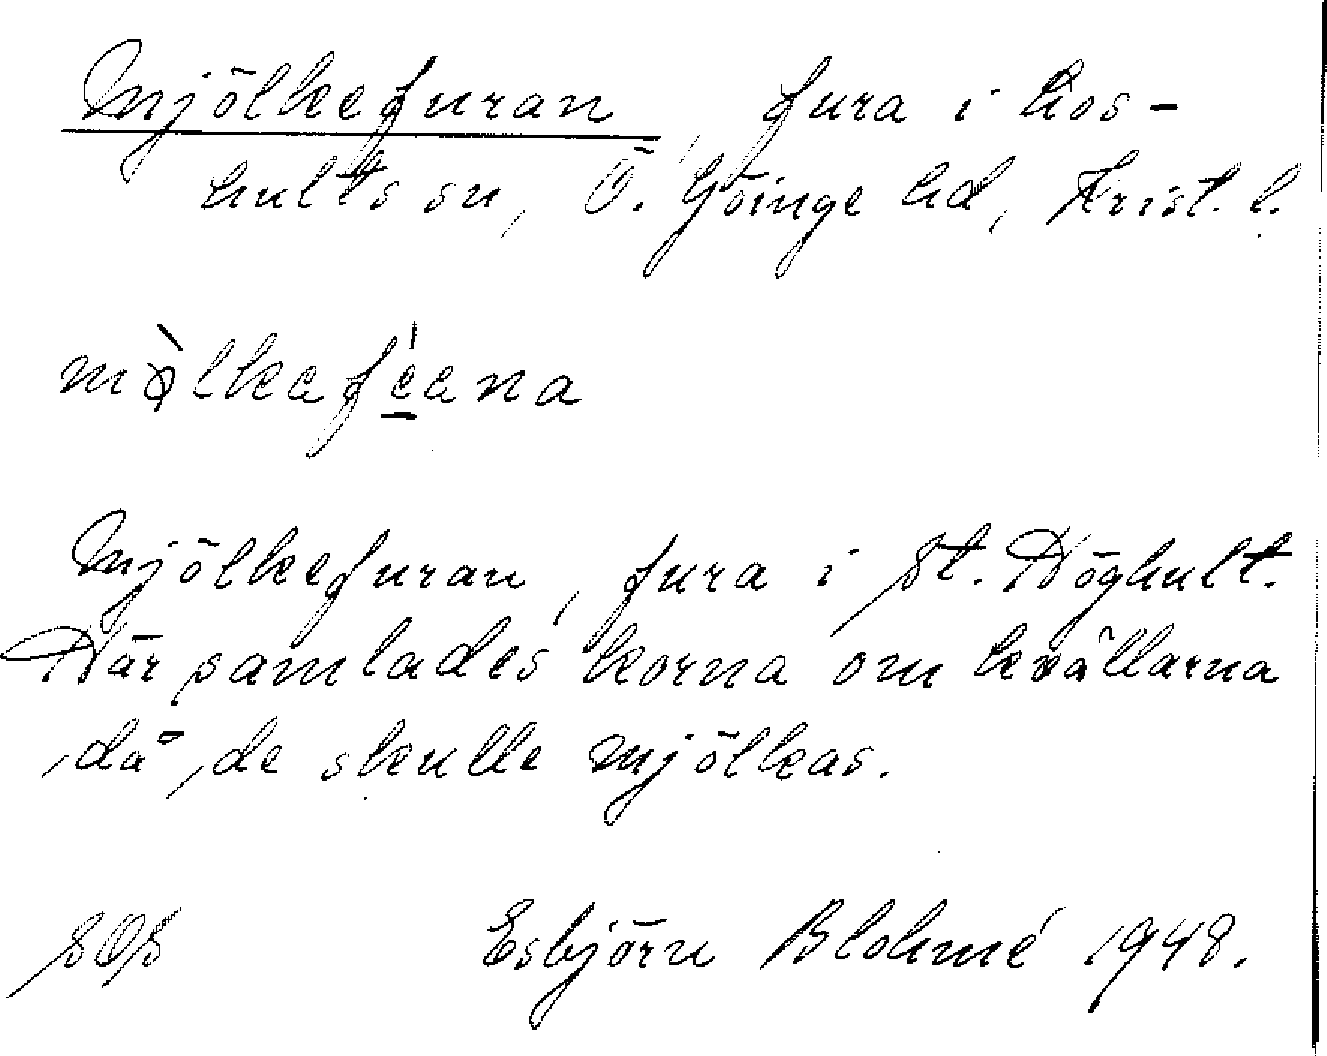 Mjölkefuran, fura i Los-
hults sn, Ö. Göinge hd, Krist. l.
Mjölkefuran, fura i St. Höghult.
Där samlades korna om kvällarna
då de skulle mjölkas.
SOS Esbjörn Blohmé 1948.